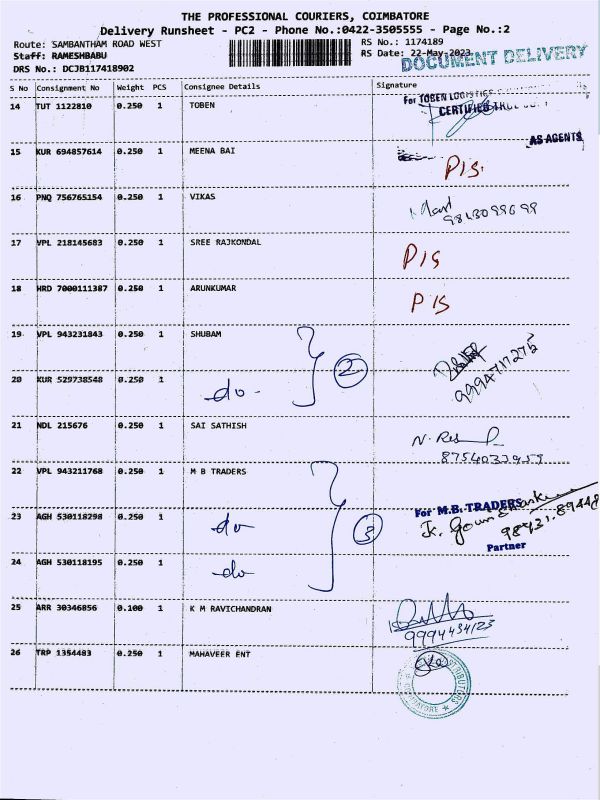 THE PROFESSIONAL COURIERS, COIMBATORE
Delivery Runsheet - PC2 - Phone No.:0422-3505555 - Page No.:2
Route: SAMBANTHAM ROAD WEST RS No.: 1174189
Staff: RAMESHBABU RS Date: 22-May-2023
DOCUMENT DELIVERY
DRS No.: DCJB117418902
S No Consignment No Weight PCS Consignee Details Signature
14 TUT 1122810 0.250 1 TOBEN
For TOBEN LOGISTICS
CERTIFIED TRUE
AS AGENTS
15 KUR 694857614 0.250 1 MEENA BAI
P/S.
16 PNQ 756765154 0.250 1 VIKAS
9843099699
17 VPL 218145683 0.250 1 SREE RAJKONDAL
P/S
18 HRD 7000111387 0.250 1 ARUNKUMAR
P/S
19 VPL 943231843 0.250 1 SHUBAM
2
9994717275
20 KUR 529738548 0.250 1 do
21 NDL 215676 0.250 1 SAI SATHISH
22 VPL 943211768 0.250 1 M B TRADERS
For M.B. TRADERS
23 AGH 530118298 0.250 1 do 3
98431.89448
Partner
24 AGH 530118195 0.250 1 do
25 ARR 30346856 0.100 1 K M RAVICHANDRAN
9994434123
26 TRP 1354483 0.250 1 MAHAVEER ENT